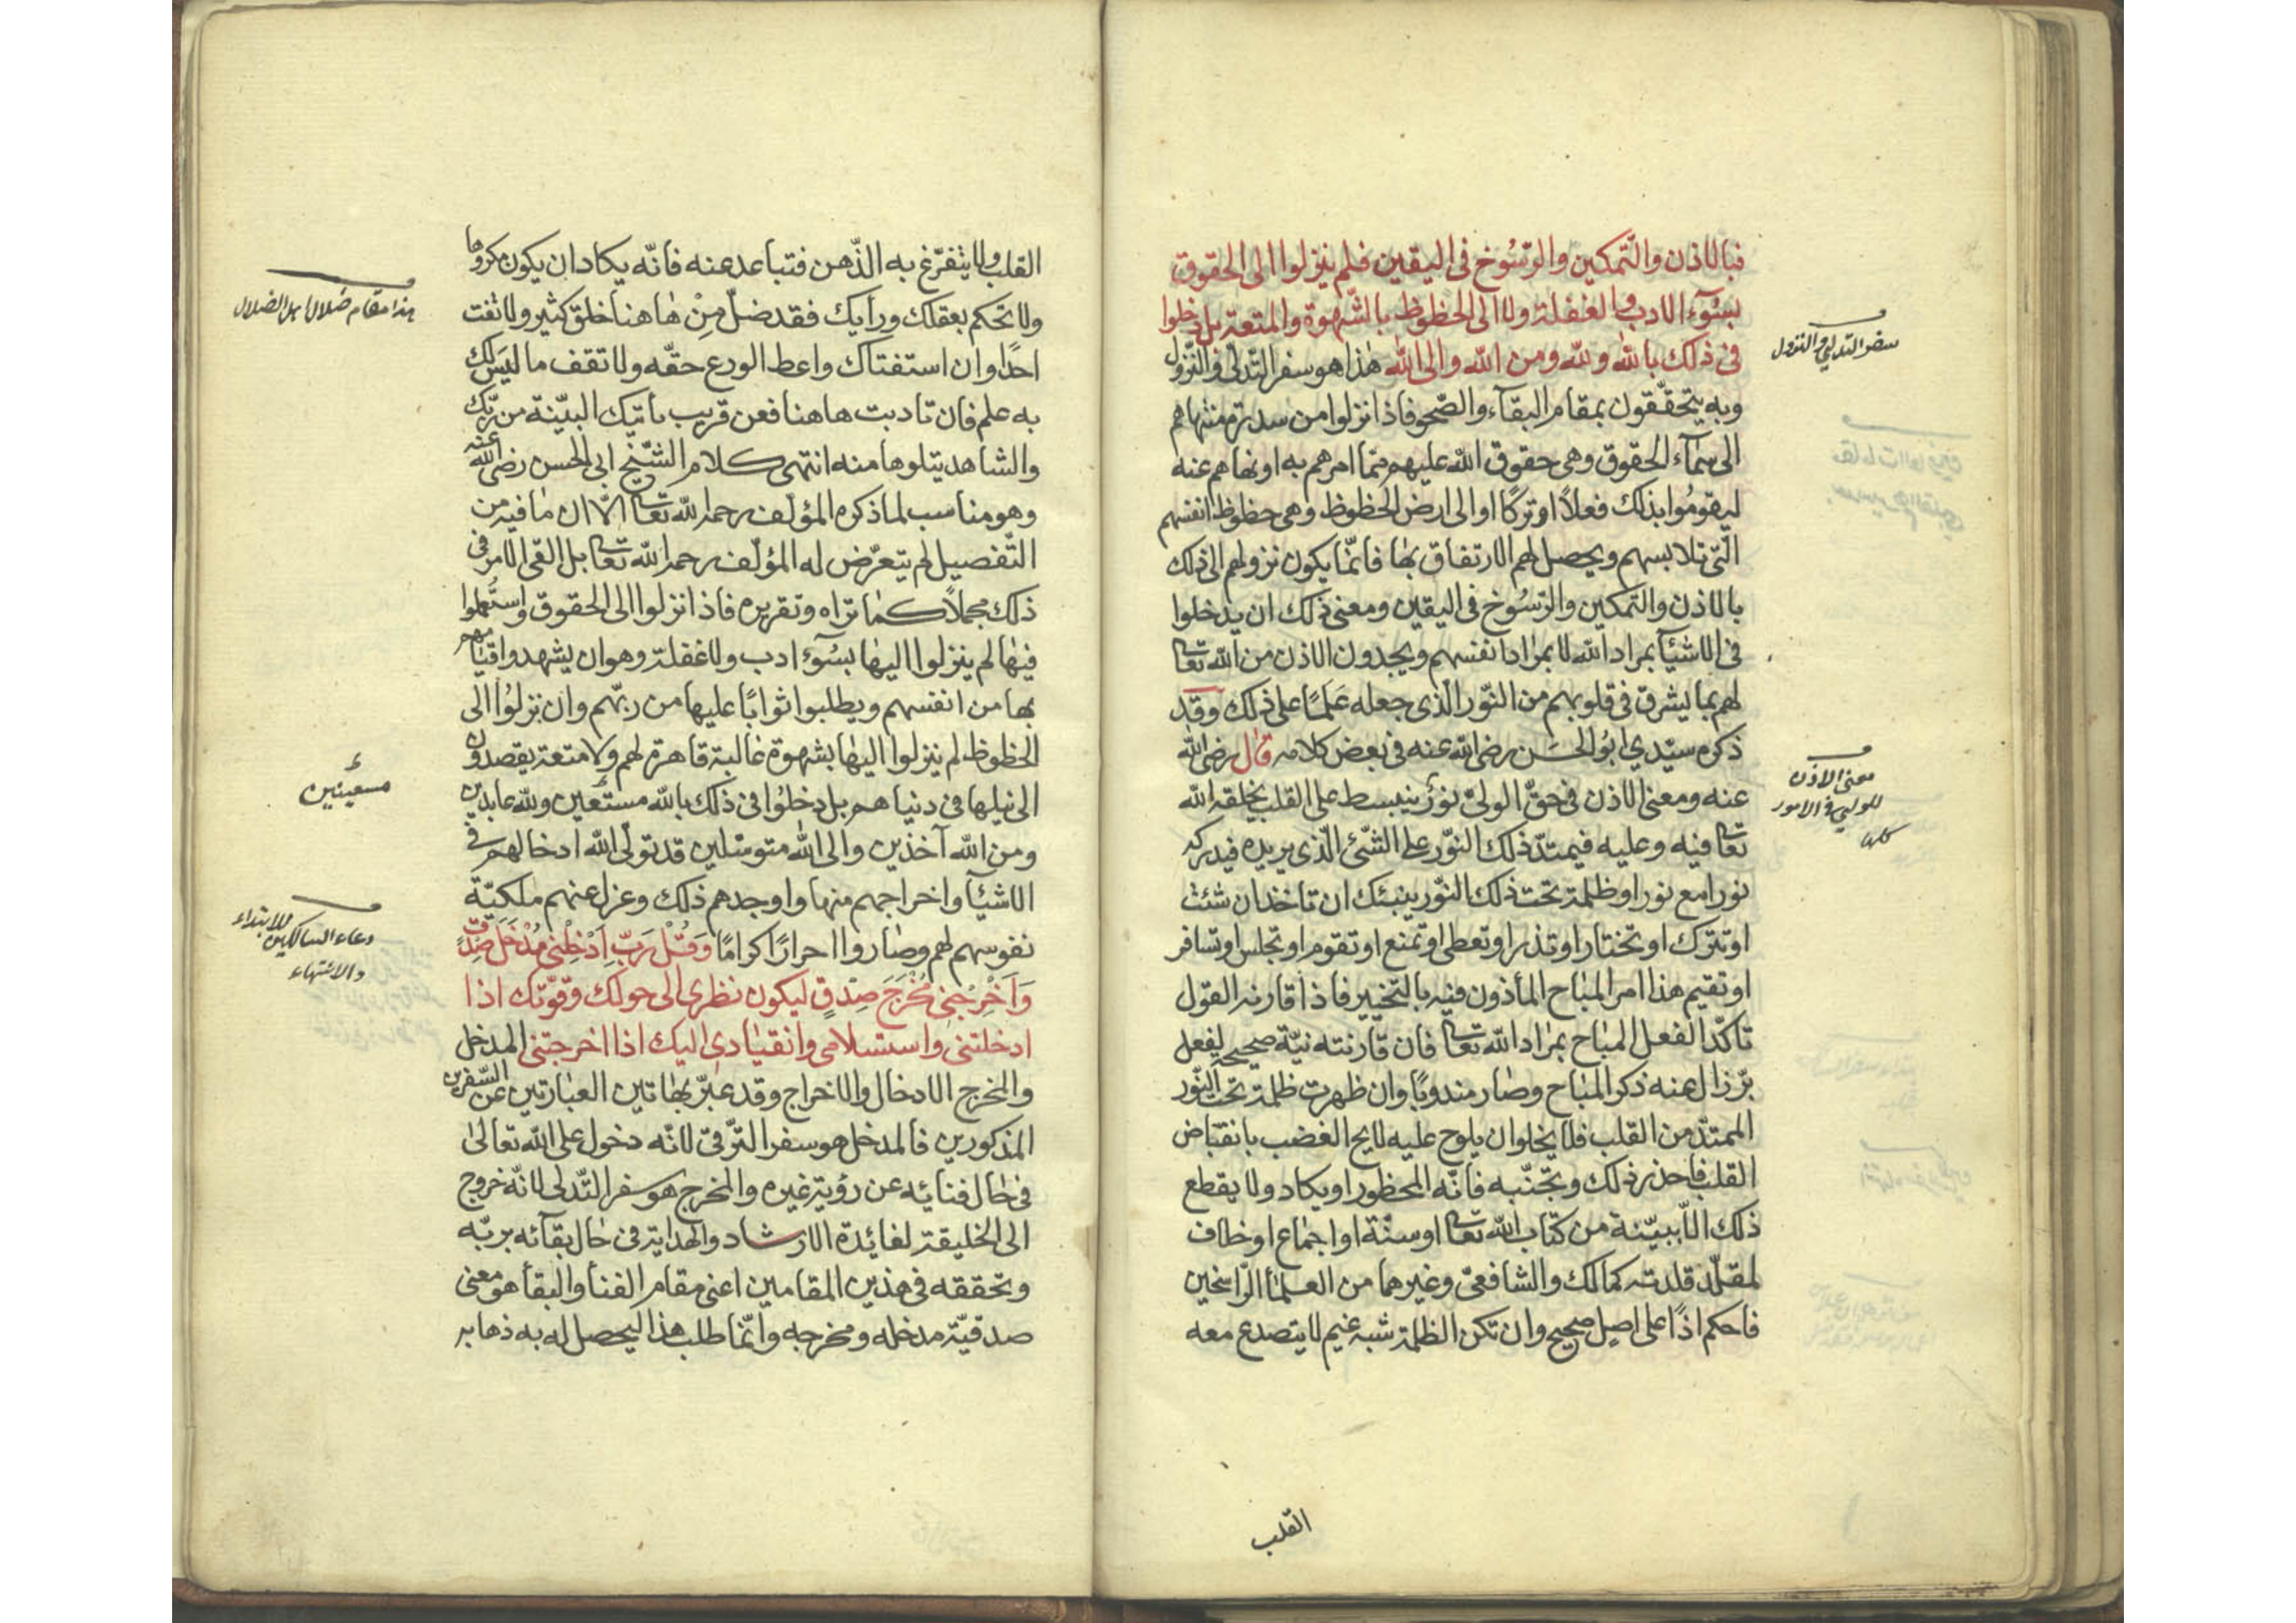 فبالاذن والتّمكين والرّسُوخ فى اليقين فلم ينزلوا الى الحقوق
بسُوء الادب والغفلة ولا الى الحظوظ بالشّهوة والمتعة بل دخلوا
فى ذلك بالله ولله ومن الله والى الله هٰذا هو سفر التّدلّى والنّزول
وبه يتحقّقون بمقام البقآء والصّحو فاذا نزلوا من سدرة منتهاهم
الى سمآء الحقوق وهى حقوق الله عليهم ممّا امرهم به او نهاهم عنه
ليقومُوا بذلك فعلاً او تركًا او الى ارض الحظوظ وهى حظوظ انفسهم
الّتى تلابسهم ويحصل لهم الارتفاق بها فانّما يكون نزولهم الى ذلك
بالاذن والتّمكين والرّسُوخ فى اليقين ومعنى ذلك ان يدخلوا
فى الاشيآ بمراد الله لا بمراد انفسهم ويجدون الاذن من الله تعا
لهم بما يشرق فى قلوبهم من النّور الّذى جعله عَلَمًا على ذلك وقد
ذكره سيّدي ابُو الحَسَن رضى الله عنه فى بعض كلامه قال رضى الله
عنه ومعنى الاذن فى حقّ الولىّ نورٌ ينبسط على القلب يخلقه الله
تعا فيه وعليه فيمتدّ ذلك النّور على الشّئ الّذى يريده فيدركه
نورا مع نور او ظلمة تحت ذلك النّور ينبئك ان تاخذ ان شئت
او تترك او تختار او تذر او تعطى او تمنع او تقوم او تجلس او تسافر
او تقيم هذا امر المباح المأذون فيه بالتّخيير فاذا قارنه القول
تاكّد الفعل المباح بمراد الله تعا فان قارنته نيّة صحيحة لفعل
برّ زال عنه ذكر المباح وصار مندوبًا وان ظهرت ظلمة تحت النّور
الممتدّ من القلب فلا يخلو ان يلوح عليه لايح الغضب بانقباض
القلب فاحذر ذلك وتجنّبه فانّه المحظور او يكاد ولا يقطع
ذلك الّا ببيّنة من كتاب الله تعا او سنّة او اجماع او خلاف
لمقلّد قلدته كمالك والشافعىّ وغيرهما من العلمأ الرّاسخين
فاحكم اذًا على اصل صحيح وان تكن الظلمة شبه غيم لا يتصدع معه
القلب
سفر التدلي والنزول
معنى الاذن
للولي فى الامور
كلها
القلب ولا يتفرّغ به الذّهن فتباعد عنه فانّه يكاد ان يكون مكروها
ولا تحكم بعقلك ورأيك فقد ضلّ مِنْ هاهنا خلق كثير ولا تفت
احدًا وان استفتاك واعط الودع حقّه ولا تقف ما ليس لك
به علم فان تادبت هاهنا فعن قريب يأتيك البيّنة من ربّك
والشاهد يتلوها منه انتهى كلام الشّيخ ابى الحسن رضى الله عنه
وهو مناسب لما ذكره المؤلّف رحمه الله تعا الّا ان ما فيه من
التّفصيل لم يتعرّض له المؤلّف رحمه الله تعا بل القى الامر فى
ذلك مجملاً كما تراه وتقريره فاذا نزلوا الى الحقوق واستُعملوا
فيها لم ينزلوا اليها بسُوء ادب ولا غفلة وهو ان يشهدوا قيامهم
بها من انفسهم ويطلبوا ثوابًا عليها من ربّهم وان نزلُوا الى
الحظوظ لم ينزلوا اليها بشهوة غالبة قاهرة لهم ولا متعة يقصدون
الى نيلها فى دنياهم بل دخلُوا فى ذلك بالله مستعين ولله عابدين
ومن الله آخذين والى الله متوسّلين قد تولّى الله ادخالهم فى
الاشيآ واخراجهم منها واوجدهم ذلك وعزل عنهم ملكيّة
نفوسهم لهم وصاروا احرارًا كرامًا وَقُلْ رَبِّ اَدْخِلْنِى مُدْخَلَ صِدْقٍ
وَاَخْرِجْنِى مُخْرَجَ صِدْقٍ ليكون نظرى الى حولك وقوّتك اذا
ادخلتنى واستسلامى وانقيادى اليك اذا اخرجتنى المدخل
والمخرج الادخال والاخراج وقد عبّر بهاتين العبارتين عن السّفرين
المذكورين فالمدخل هو سفر التّرقّى لانّه دخول على الله تعالىٰ
فى حال فنائه عن رؤية غيره والمخرج هو سفر التّدلى لانّه خروج
الى الخليقة لفائدة الارشاد والهداية فى حال بقآئه بربّه
وتحققه فى هذين المقامين اعنى مقام الفنأ والبقأ هو معنى
صدقيّة مدخله ومخرجه وانّما طلب هذا ليحصل له به ذهابه
هذا مقام ضلال اهل الضلال
مستعينين
دعاء السالكين للابتداء
والانتهاء